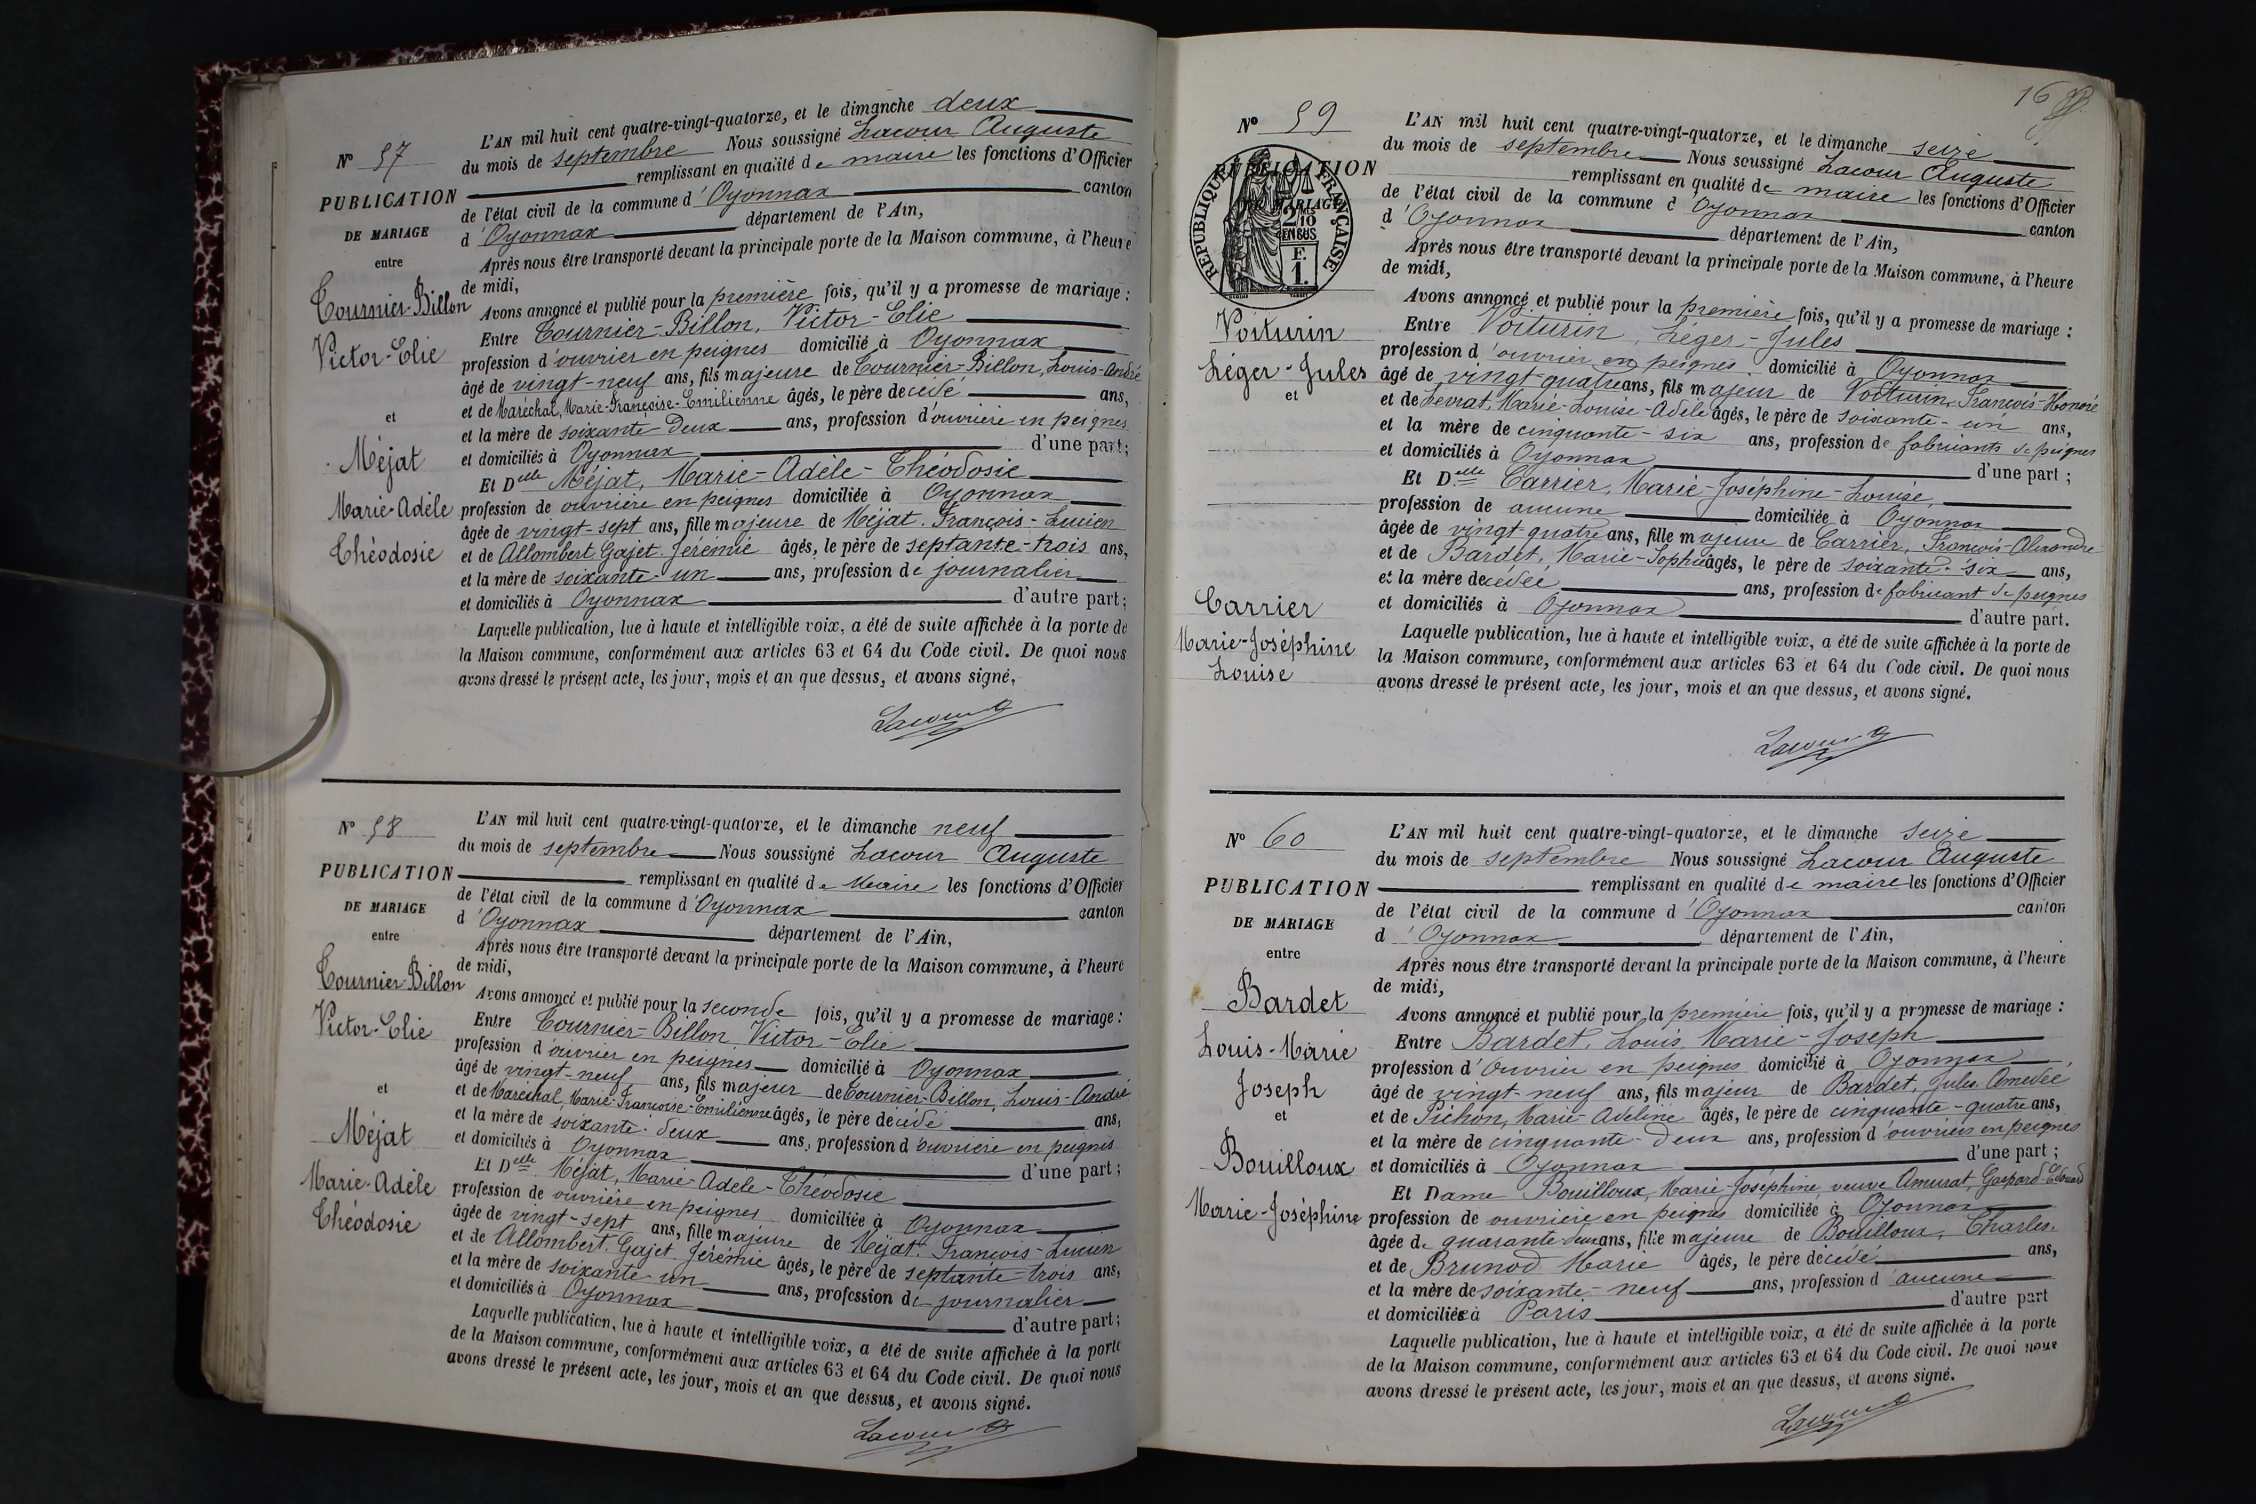 L'AN mil huit cent quatre-vingt-quatorze, et le dimanche deux
N° 57
du mois de septembre Nous soussigné Lacour Auguste
remplissant en qualité de maire les fonctions d'Officier
PUBLICATION
de l'état civil de la commune d'Oyonnax canton
DE MARIAGE
d'Oyonnax département de l'Ain,
entre
Après nous être transporté devant la principale porte de la Maison commune, à l'heure
de midi,
Tournier-Billon
Avons annoncé et publié pour la première fois, qu'il y a promesse de mariage :
Entre Tournier-Billon, Victor-Elie
Victor-Elie
profession d'ouvrier en peignes domicilié à Oyonnax
âgé de vingt-neuf ans, fils majeure de Tournier-Billon, Louis-André
et de Maréchal, Marie-Françoise-Emilienne âgés, le père decédé ans,
et
et la mère de soixante-deux ans, profession d'ouvrière en peignes
Méjat
et domiciliés à Oyonnax d'une part;
Et Delle Méjat, Marie-Adèle-Théodosie
Marie-Adèle
profession de ouvrière en peignes domiciliée à Oyonnax
âgée de vingt-sept ans, fille majeure de Méjat. François-Lucien
Théodosie
et de Allombert Gajet Jérémie âgés, le père de septante-trois ans,
et la mère de soixante-un ans, profession de journalier
et domiciliés à Oyonnax d'autre part;
Laquelle publication, lue à haute et intelligible voix, a été de suite affichée à la porte de
la Maison commune, conformément aux articles 63 et 64 du Code civil. De quoi nous
avons dressé le présent acte, les jour, mois et an que dessus, et avons signé,
Lacour A
N° 58
L'AN mil huit cent quatre-vingt-quatorze, et le dimanche neuf
du mois de septembre Nous soussigné Lacour Auguste
PUBLICATION
remplissant en qualité de Maire les fonctions d'Officier
de l'état civil de la commune d'Oyonnax canton
DE MARIAGE
d'Oyonnax département de l'Ain,
entre
Après nous être transporté devant la principale porte de la Maison commune, à l'heure
de midi,
Tournier-Billon
Avons annoncé et publié pour la seconde fois, qu'il y a promesse de mariage :
Victor-Elie
Entre Tournier-Billon Victor-Elie
profession d'ouvrier en peignes domicilié à Oyonnax
âgé de vingt-neuf ans, fils majeur de Tournier-Billon, Louis-André
et
et de Maréchal, Marie-Françoise-Emilienne âgés, le père décédé ans,
et la mère de soixante-deux ans, profession d'ouvrière en peignes
Méjat
et domiciliés à Oyonnax d'une part;
Et Delle Méjat, Marie-Adèle-Théodosie
Marie-Adèle
profession de ouvrière en peignes domiciliée à Oyonnax
Théodosie
âgée de vingt-sept ans, fille majeure de Méjat. François-Lucien
et de Allombert. Gajet Jérémie âgés, le père de septante-trois ans,
et la mère de soixante-un ans, profession de journalier
et domiciliés à Oyonnax d'autre part;
Laquelle publication, lue à haute et intelligible voix, a été de suite affichée à la porte
de la Maison commune, conformément aux articles 63 et 64 du Code civil. De quoi nous
avons dressé le présent acte, les jour, mois et an que dessus, et avons signé.
Lacour A
16
N° 59
L'AN mil huit cent quatre-vingt-quatorze, et le dimanche seize
du mois de septembre Nous soussigné Lacour Auguste
PUBLICATION
remplissant en qualité de maire les fonctions d'Officier
DE MARIAGE
RÉPUBLIQUE FRANÇAISE
2/10 EN SUS
F.
1.
de l'état civil de la commune d'Oyonnax canton
d'Oyonnax département de l'Ain,
Après nous être transporté devant la principale porte de la Maison commune, à l'heure
de midi,
Avons annoncé et publié pour la première fois, qu'il y a promesse de mariage :
Voiturin
Entre Voiturin, Léger-Jules
Léger-Jules
profession d'ouvrier en peignes domicilié à Oyonnax
et
âgé de vingt-quatre ans, fils majeur de Voiturin, François-Honoré
et de Levrat, Marie-Louise-Adèle âgés, le père de soixante-un ans,
et la mère de cinquante-six ans, profession de fabricants de peignes
et domiciliés à Oyonnax d'une part ;
Et Delle Carrier, Marie-Joséphine-Louise,
profession de aucune domiciliée à Oyonnax
âgée de vingt-quatre ans, fille majeure de Carrier, François-Alexandre
et de Bardet, Marie-Sophie âgés, le père de soixante-six ans,
Carrier
et la mère decédée ans, profession de fabricant de peignes
et domiciliés à Oyonnax d'autre part.
Marie-Joséphine
Laquelle publication, lue à haute et intelligible voix, a été de suite affichée à la porte de
Louise
la Maison commune, conformément aux articles 63 et 64 du Code civil. De quoi nous
avons dressé le présent acte, les jour, mois et an que dessus, et avons signé.
Lacour A
N° 60
L'AN mil huit cent quatre-vingt-quatorze, et le dimanche seize
du mois de septembre Nous soussigné Lacour Auguste
PUBLICATION
remplissant en qualité de maire les fonctions d'Officier
de l'état civil de la commune d'Oyonnax canton
DE MARIAGE
d'Oyonnax département de l'Ain,
entre
Après nous être transporté devant la principale porte de la Maison commune, à l'heure
de midi,
Bardet
Avons annoncé et publié pour la première fois, qu'il y a promesse de mariage :
Louis-Marie
Entre Bardet, Louis Marie-Joseph
profession d'ouvrier en peignes domicilié à Oyonnax
Joseph
âgé de vingt-neuf ans, fils majeur de Bardet, Jules Amedée
et
et de Pichon, Marie-Adeline âgés, le père de cinquante-quatre ans,
et la mère de cinquante-deux ans, profession d'ouvriers en peignes
Bouilloux
et domiciliés à Oyonnax d'une part ;
Et Dame Bouilloux, Marie-Joséphine, veuve Amurat, Gaspard-Edouard
Marie-Joséphine
profession de ouvrière en peignes domiciliée à Oyonnax
âgée de quarante-deux ans, fille majeure de Bouilloux, Charles.
et de Brunod Marie âgés, le père décédé ans,
et la mère de soixante-neuf ans, profession d'aucune
et domiciliée à Paris d'autre part
Laquelle publication, lue à haute et intelligible voix, a été de suite affichée à la porte
de la Maison commune, conformément aux articles 63 et 64 du Code civil. De quoi nous
avons dressé le présent acte, les jour, mois et an que dessus, et avons signé.
Lacour A